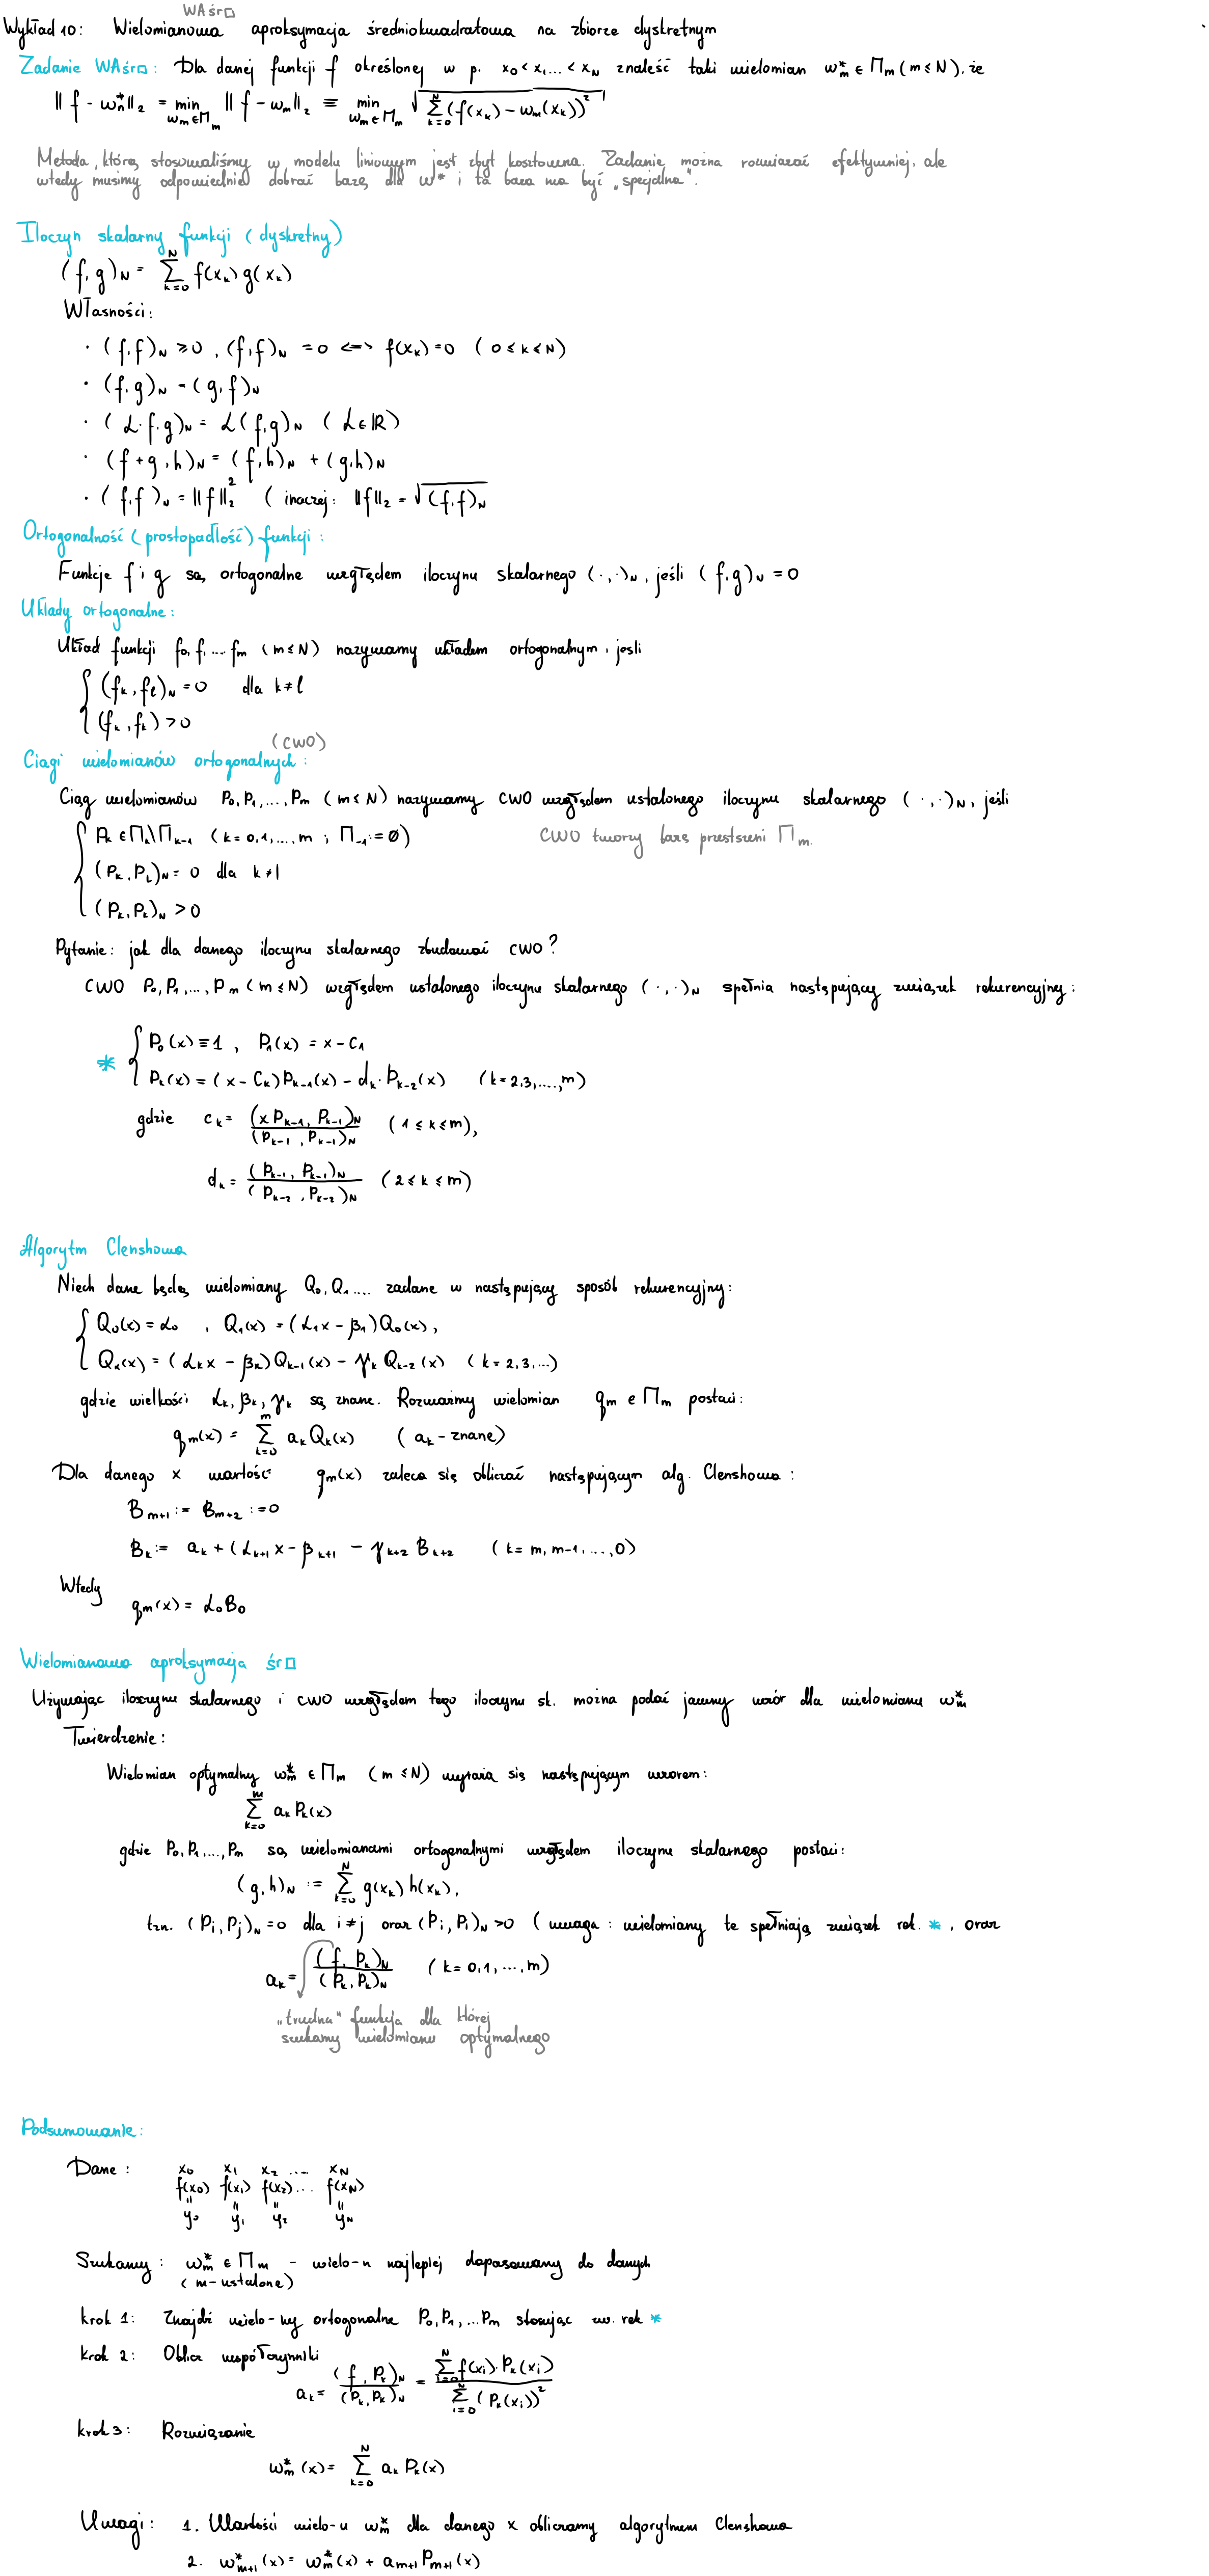 WAśr□
Wykład 10: Wielomianowa aproksymacja średniokwadratowa na zbiorze dyskretnym
Zadanie WAśr□: Dla danej funkcji f określonej w p. x₀ < x₁ ... < x_N znaleść taki wielomian w*_m ∈ Π_m (m ≤ N), że
‖f - w*_n‖₂ = min_{w_m ∈ Π_m} ‖f - w_m‖₂ ≡ min_{w_m ∈ Π_m} √(∑_{k=0}^{N} (f(x_k) - w_m(x_k))²)
Metoda, którą stosowaliśmy w modelu liniowym jest zbyt kosztowna. Zadanie można rozwiązać efektywniej, ale
wtedy musimy odpowiednio dobrać bazę dla w* i ta baza ma być „specjalna".
Iloczyn skalarny funkcji (dyskretny)
(f, g)_N = ∑_{k=0}^{N} f(x_k) g(x_k)
Własności:
· (f, f)_N ≥ 0, (f, f)_N = 0 <=> f(x_k) = 0 (0 ≤ k ≤ N)
· (f, g)_N = (g, f)_N
· (α · f, g)_N = α (f, g)_N (α ∈ ℝ)
· (f + g, h)_N = (f, h)_N + (g, h)_N
· (f, f)_N = ‖f‖₂² (inaczej: ‖f‖₂ = √(f, f)_N
Ortogonalność (prostopadłość) funkcji:
Funkcje f i g są ortogonalne względem iloczynu skalarnego (·, ·)_N, jeśli (f, g)_N = 0
Układy ortogonalne:
Układ funkcji f₀, f₁ ... f_m (m ≤ N) nazywamy układem ortogonalnym, jesli
{ (f_k, f_l)_N = 0 dla k ≠ l
(f_k, f_k) > 0
(CWO)
Ciągi wielomianów ortogonalnych:
Ciąg wielomianów P₀, P₁, ..., P_m (m ≤ N) nazywamy CWO względem ustalonego iloczynu skalarnego (·, ·)_N, jeśli
{ P_k ∈ Π_k \ Π_{k-1} (k = 0, 1, ..., m ; Π_{-1} := ∅)
CWO tworzy bazę przestszeni Π_m.
(P_k, P_l)_N = 0 dla k ≠ l
(P_k, P_k)_N > 0
Pytanie: jak dla danego iloczynu skalarnego zbudować CWO?
CWO P₀, P₁, ..., P_m (m ≤ N) względem ustalonego iloczynu skalarnego (·, ·)_N spełnia następujący związek rekurencyjny:
* { P₀(x) ≡ 1, P₁(x) = x - C₁
P_k(x) = (x - C_k) P_{k-1}(x) - d_k · P_{k-2}(x) (k = 2, 3, ..., m)
gdzie c_k = (x P_{k-1}, P_{k-1})_N / (P_{k-1}, P_{k-1})_N (1 ≤ k ≤ m),
d_k = (P_{k-1}, P_{k-1})_N / (P_{k-2}, P_{k-2})_N (2 ≤ k ≤ m)
Algorytm Clenshowa
Niech dane będą wielomiany Q₀, Q₁ .... zadane w następujący sposób rekurencyjny:
{ Q₀(x) = α₀, Q₁(x) = (α₁x - β₁) Q₀(x),
Q_k(x) = (α_k x - β_k) Q_{k-1}(x) - γ_k Q_{k-2}(x) (k = 2, 3, ...)
gdzie wielkości α_k, β_k, γ_k są znane. Rozważmy wielomian q_m ∈ Π_m postaci:
q_m(x) = ∑_{k=0}^{m} a_k Q_k(x) (a_k - znane)
Dla danego x wartość q_m(x) zaleca się obliczać następującym alg. Clenshowa:
B_{m+1} := B_{m+2} := 0
B_k := a_k + (α_{k+1} x - β_{k+1} - γ_{k+2} B_{k+2} (k = m, m-1, ..., 0)
Wtedy
q_m(x) = α₀B₀
Wielomianowa aproksymacja śr□
Używając iloczynu skalarnego i CWO względem tego iloczynu sk. można podać jawny wzór dla wielomianu w*_m
Twierdzenie:
Wielomian optymalny w*_m ∈ Π_m (m ≤ N) wyraża się następującym wzorem:
∑_{k=0}^{m} a_k P_k(x)
gdzie P₀, P₁, ..., P_m są wielomianami ortogonalnymi względem iloczynu skalarnego postaci:
(g, h)_N := ∑_{k=0}^{N} g(x_k) h(x_k),
tzn. (P_i, P_j)_N = 0 dla i ≠ j oraz (P_i, P_i)_N > 0 (uwaga: wielomiany te spełniają związek rek. *, oraz
a_k = (f, P_k)_N / (P_k, P_k)_N (k = 0, 1, ..., m)
„trudna" funkcja dla której
szukamy wielomianu optymalnego
Podsumowanie:
Dane: x₀ x₁ x₂ .... x_N
f(x₀) f(x₁) f(x₂) ... f(x_N)
= = = =
y₀ y₁ y₂ y_N
Szukamy: w*_m ∈ Π_m - wielo-n najlepiej dopasowany do danych
(m - ustalone)
krok 1: Znajdź wielo-ny ortogonalne P₀, P₁, ... P_m stosując zw. rek *
krok 2: Oblicz współczynniki
a_k = (f, P_k)_N / (P_k, P_k)_N = ∑_{i=0}^{N} f(x_i) · P_k(x_i) / ∑_{i=0}^{N} (P_k(x_i))²
krok 3: Rozwiązanie
w*_m(x) = ∑_{k=0}^{N} a_k P_k(x)
Uwagi: 1. Wartości wielo-u w*_m dla danego x obliczamy algorytmem Clenshowa
2. w*_{m+1}(x) = w*_m(x) + a_{m+1} P_{m+1}(x)